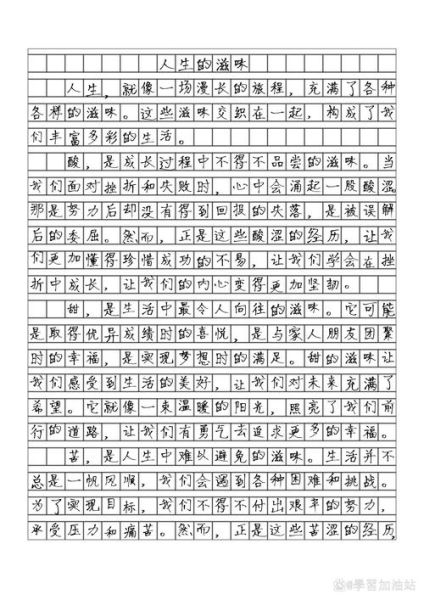 人生的滋味
人生，就像一场漫长的旅程，充满了各种
各样的滋味。这些滋味交织在一起，构成了我
们丰富多彩的生活。
酸，是成长过程中不得不品尝的滋味。当
我们面对挫折和失败时，心中会涌起一股酸涩。
那是努力后却没有得到回报的失落，是被误解
后的委屈。然而，正是这些酸涩的经历，让我
们更加懂得珍惜成功的不易，让我们学会在挫
折中成长，让我们的内心变得更加坚韧。
甜，是生活中最令人向往的滋味。它可能
是取得优异成绩时的喜悦，是与家人朋友团聚
时的幸福，是实现梦想时的满足。甜的滋味让
我们感受到生活的美好，让我们对未来充满了
希望。它就像一束温暖的阳光，照亮了我们前
行的道路，让我们有勇气去追求更多的幸福。
苦，是人生中难以避免的滋味。生活并不
总是一帆风顺，我们会遇到各种困难和挑战。
为了实现目标，我们不得不付出艰辛的努力，
承受压力和痛苦。然而，正是这些苦涩的经历，
@學習加油站